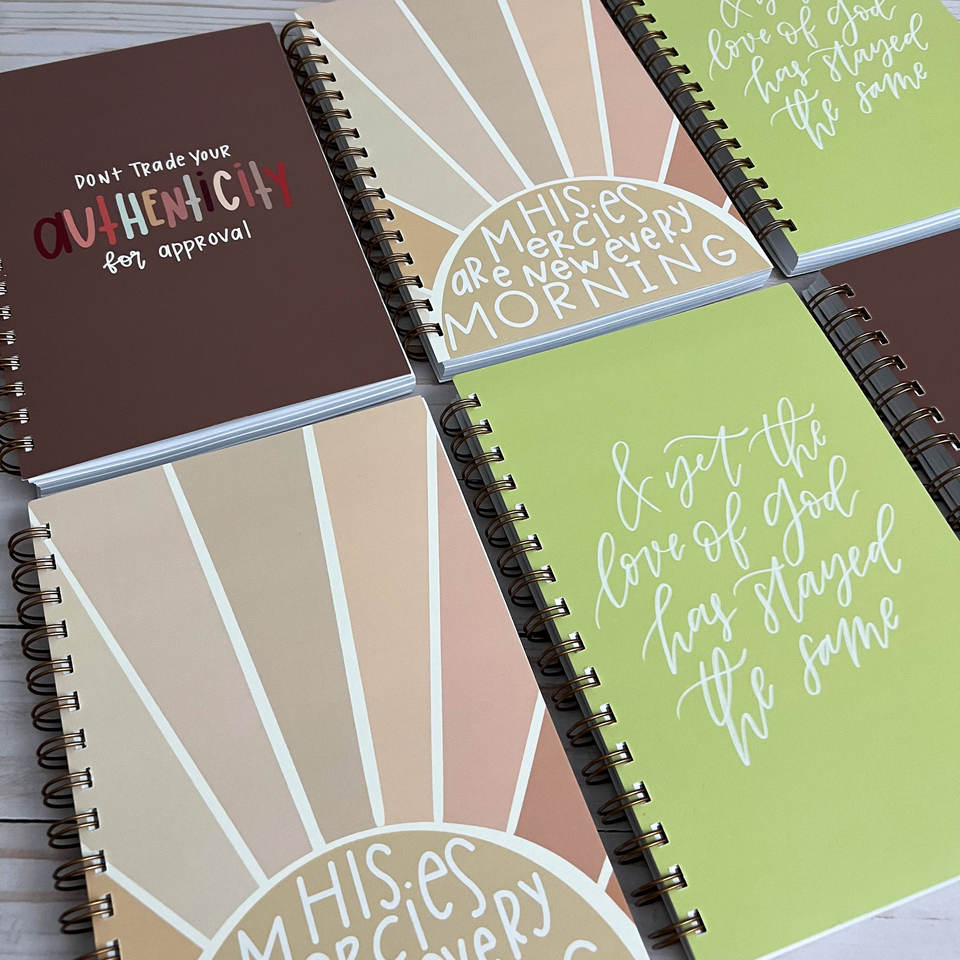 DONT TRADE YOUR
AUTHENTICITY
for approval
HIS
MERCIES
ARE NEW EVERY
MORNING
& yet the
love of God
has stayed
the same
& yet the
love of God
has stayed
the same
HIS
MERCIES